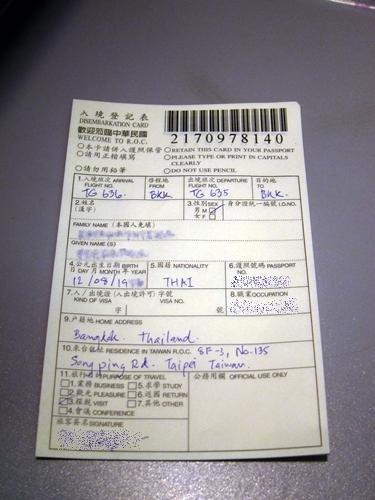 入境登記表
DISEMBARKATION CARD
歡迎蒞臨中華民國
WELCOME TO R.O.C.
2170978140
○本卡請併入護照保管 ○RETAIN THIS CARD IN YOUR PASSPORT
○請用正楷填寫 ○PLEASE TYPE OR PRINT IN CAPITALS CLEARLY
○請勿用鉛筆 ○DO NOT USE PENCIL
1.入境班次 ARRIVAL FLIGHT NO. 啓程地 FROM 出境班次 DEPARTURE FLIGHT NO. 目的地 TO
TG 636. BKK TG 635 BKK.
2.姓名 (漢字) 3.性別 SEX 男 M 女 F 身份證統一編號 I.D.NO.
FAMILY NAME (本國人免填)
GIVEN NAME(S)
4.公元出生日期 BIRTH 日 DAY 月 MONTH 年 YEAR 5.國籍 NATIONALITY 6.護照號碼 PASSPORT NO.
12 /08/19 THAI
7.入/出境證 (入出境許可) 字號 KIND OF VISA VISA NO. 字 號 8.職業 OCCUPATION
9.戶籍地 HOME ADDRESS
Bangkok. Thailand.
10.來台住址 RESIDENCE IN TAIWAN R.O.C. 8F-3, No.135
Song ping Rd. Taipei Taiwan.
11.旅行目的 PURPOSE OF TRAVEL 公務用欄 OFFICIAL USE ONLY
1.業務 BUSINESS 5.求學 STUDY
2.觀光 PLEASURE 6.返國 RETURN
3.探親 VISIT 7.其他 OTHER
4.會議 CONFERENCE
旅客簽名 SIGNATURE